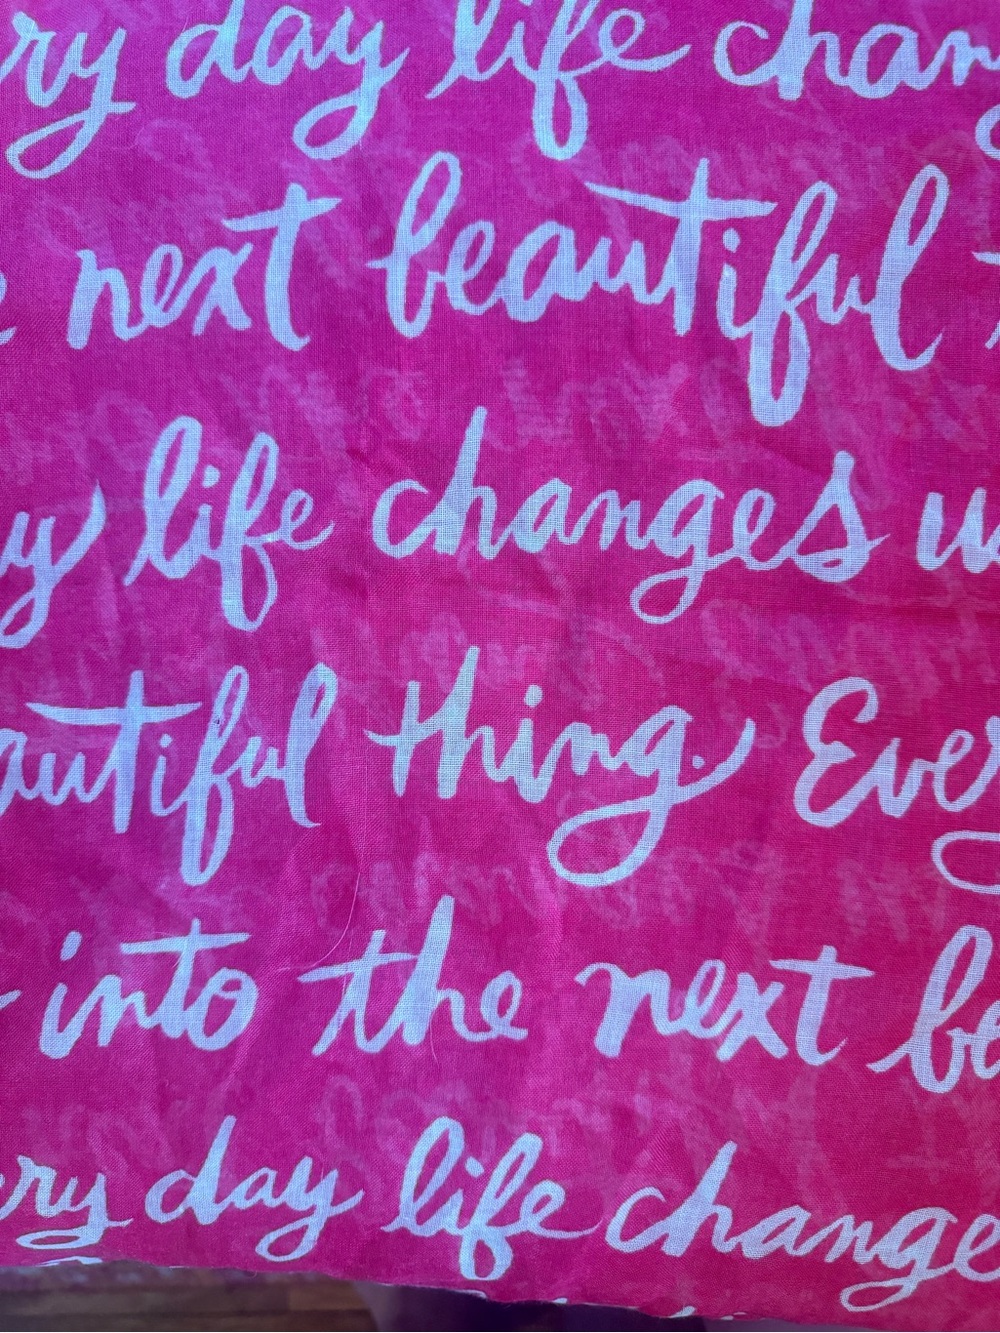 ry day life chang
next beautiful
y life changes u
autiful thing. Every
into the next be
ery day life change